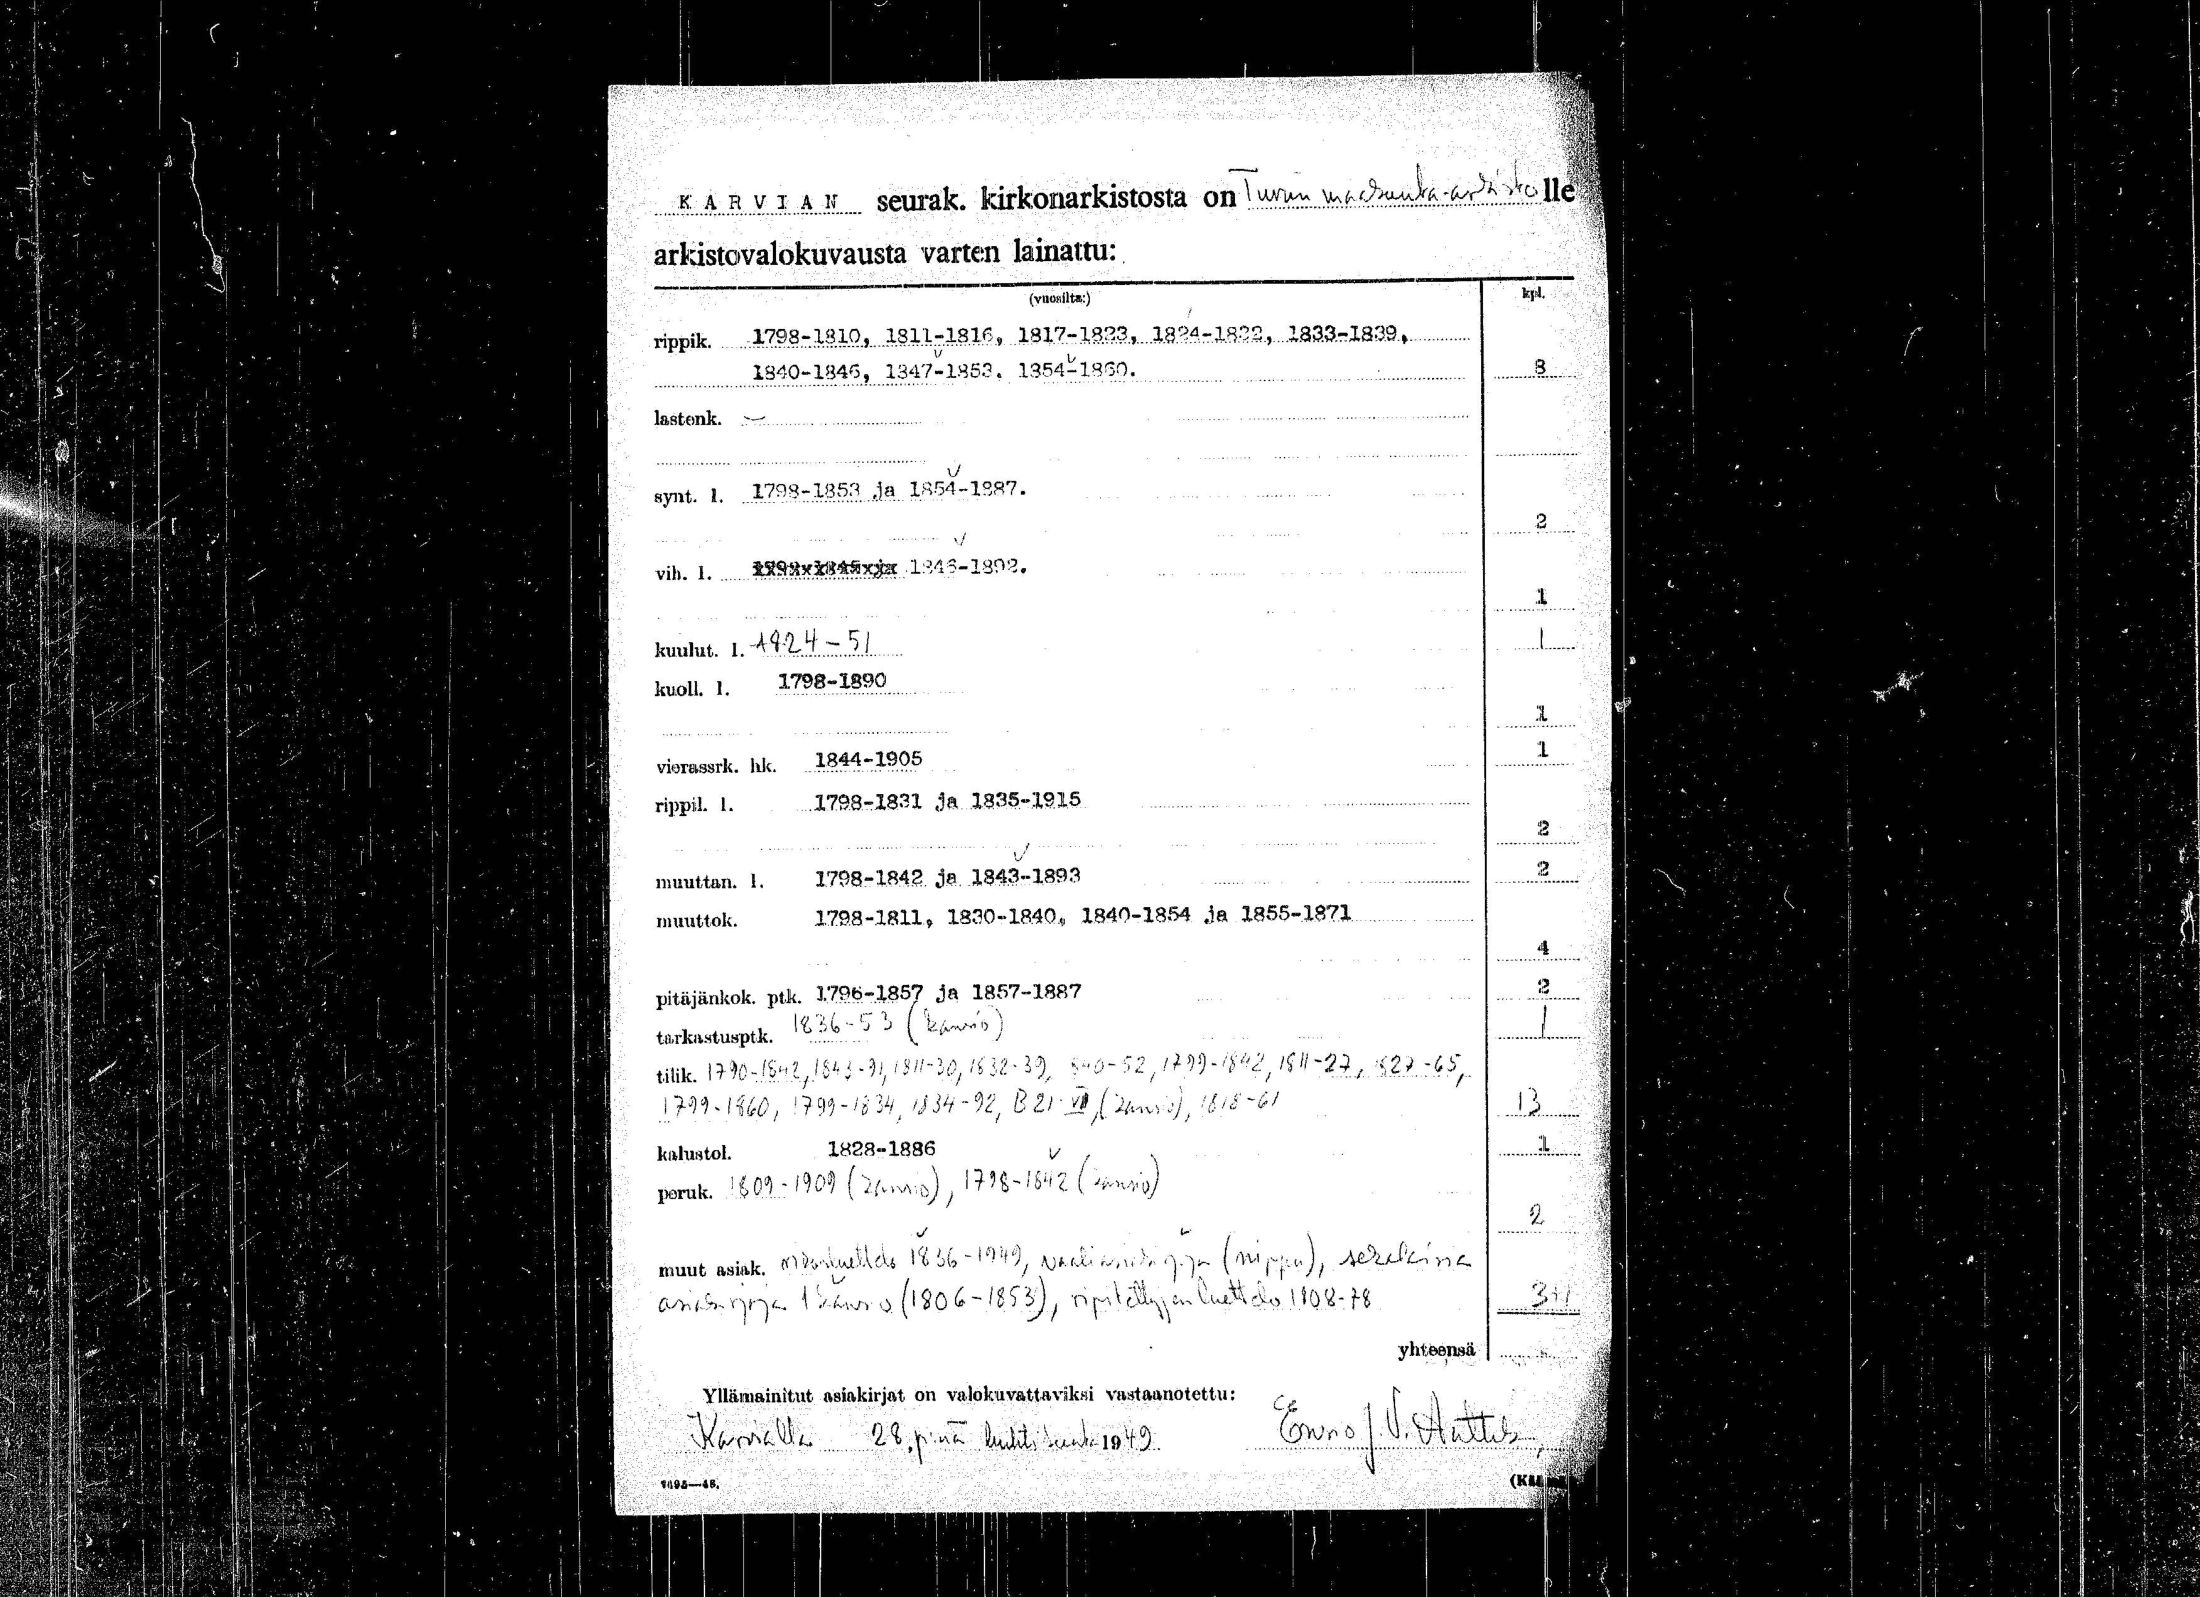 KARVIAN seurak. kirkonarkistosta on Turun maakunta-arkisto lle
arkistovalokuvausta varten lainattu:
(vuosilta:) kpl.
rippik. 1798-1810, 1811-1816, 1817-1823, 1824-1832, 1833-1839,
1840-1846, 1847-1853. 1854-1860. 8
lastenk. —
synt. l. 1798-1853 ja 1854-1887.
2
vih. l. 1846-1892.
1
kuulut. l. 1824-51 1
kuoll. l. 1798-1890
1
vierassrk. hk. 1844-1905 1
rippil. l. 1798-1831 ja 1835-1915
2
muuttan. l. 1798-1842 ja 1843-1893 2
muuttok. 1798-1811, 1830-1840, 1840-1854 ja 1855-1871
4
pitäjänkok. ptk. 1796-1857 ja 1857-1887 2
tarkastusptk. 1836-53 (kansio) 1
tilik. 1790-1842, 1843-91, 1811-30, 1832-39, 840-52, 1799-1842, 1811-27, 1827-65,
1799-1860, 1799-1834, 1834-92, B 21 VII, (kansio), 1818-61 13
kalustol. 1828-1886 1
peruk. 1809-1909 (kansio), 1798-1842 (kansio)
2
muut asiak. 1836-1949, vaaliasiakirjoja (nippu), sekalaisia
asiakirjoja 1 kansio (1806-1853), ripitettyjen luettelo 1808-78 3+1
yhteensä
Yllämainitut asiakirjat on valokuvattaviksi vastaanotettu:
Karvialla 28. p:nä huhtikuuta 1949